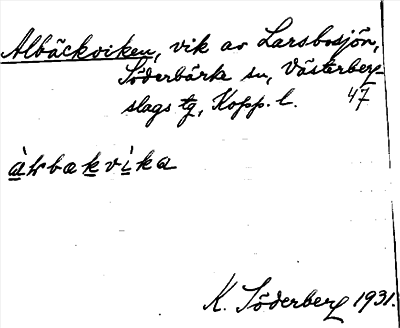 Albäckviken, vik av Larsbosjön,
Söderbärke sn, Västerberg-
slags tg, Kopp. l. 47
àƚbækvìka
K. Söderberg 1931.